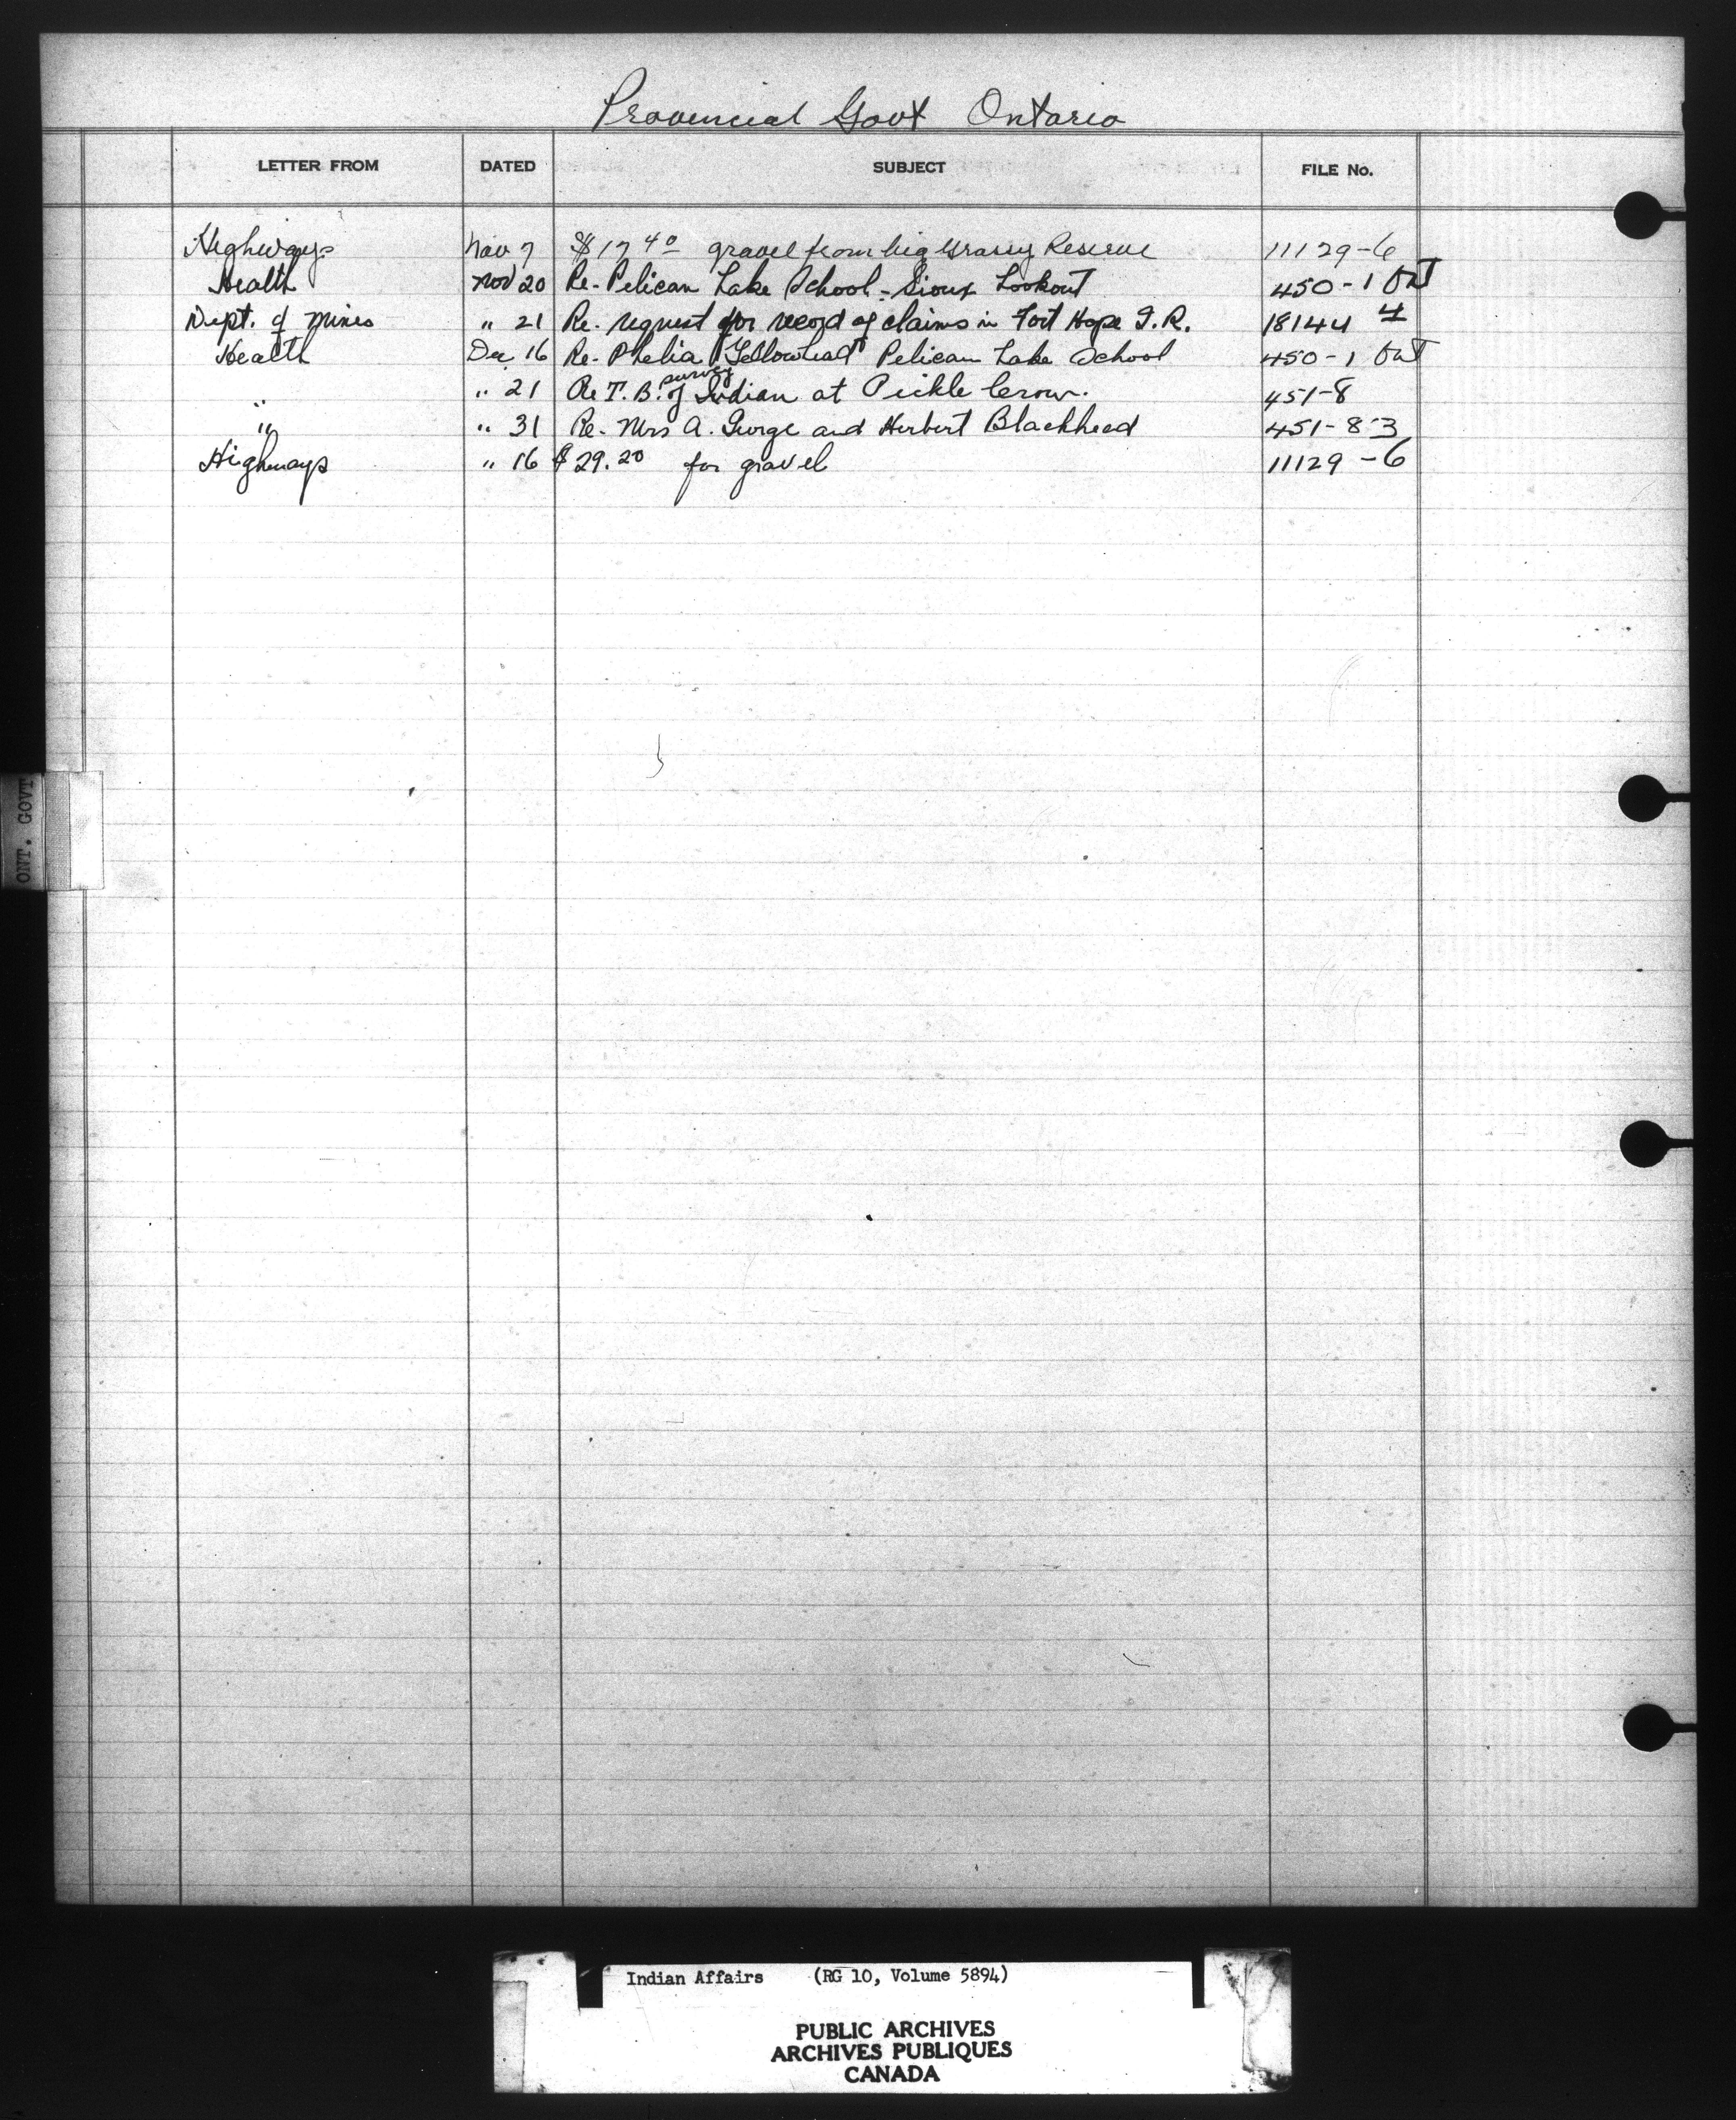 Provincial Govt Ontario
LETTER FROM DATED SUBJECT FILE No.
Highways Nov 7 $17.40 gravel from big Grassy Reserve 11129-6
Health Nov 20 Re-Pelican Lake School-Sioux Lookout 450-1 Ont
Dept. of Mines " 21 Re. request for record of claims in Fort Hope I.R. 18144 4
Health Dec 16 Re-Phelia Yellowhead Pelican Lake School 450-1 Ont
" " 21 Re T.B. survey of Indian at Pickle Crow. 451-8
" " 31 Re-Mrs A. George and Herbert Blackhead 451-8-3
Highways " 16 $29.20 for gravel 11129-6
ONT. GOVT
Indian Affairs (RG 10, Volume 5894)
PUBLIC ARCHIVES
ARCHIVES PUBLIQUES
CANADA